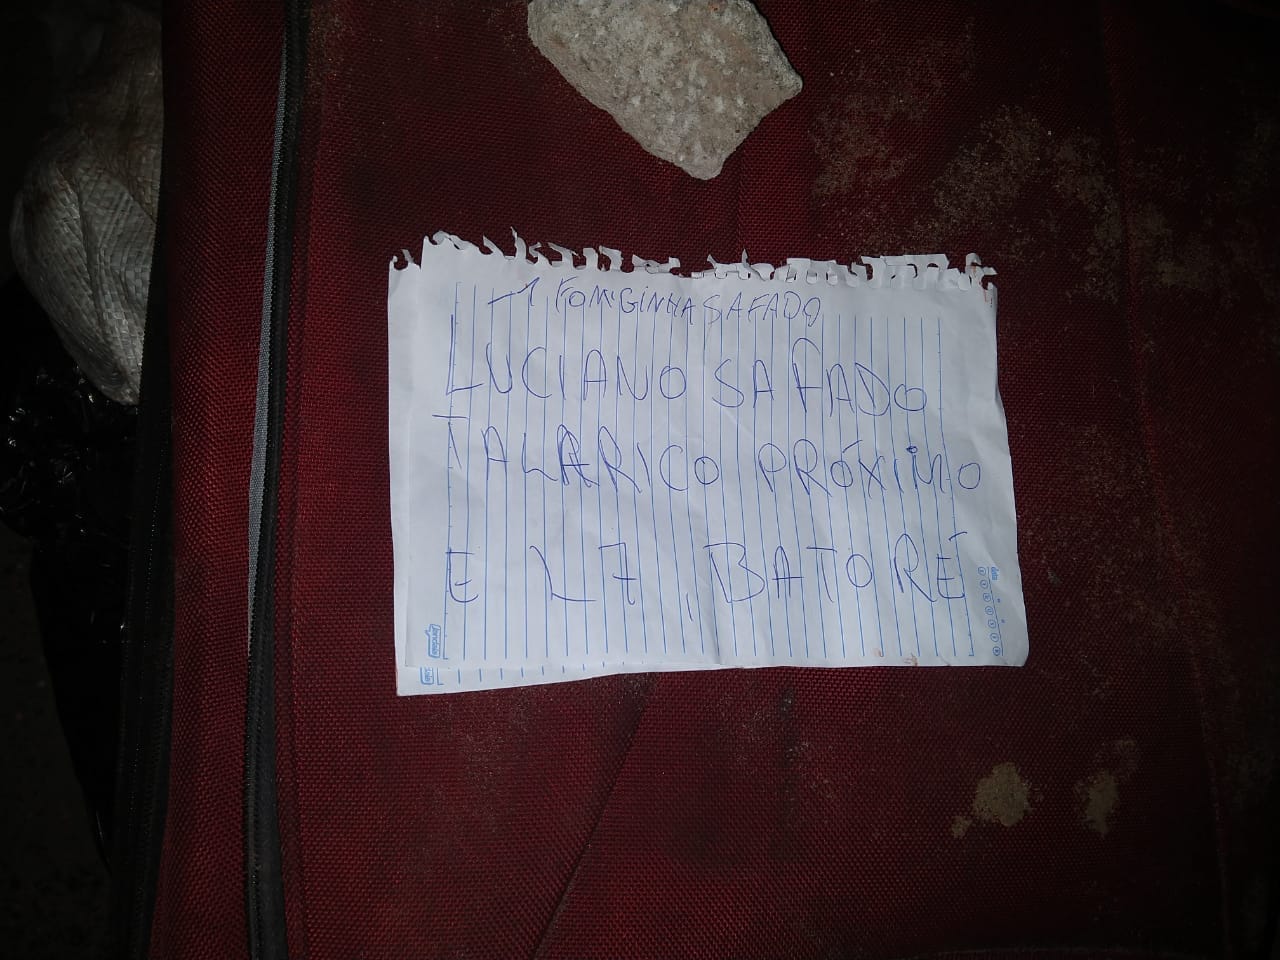 1 FOMIGINHA SAFADO
LUCIANO SAFADO
TALARICO PRÓXIMO
E L7, BATORÉ